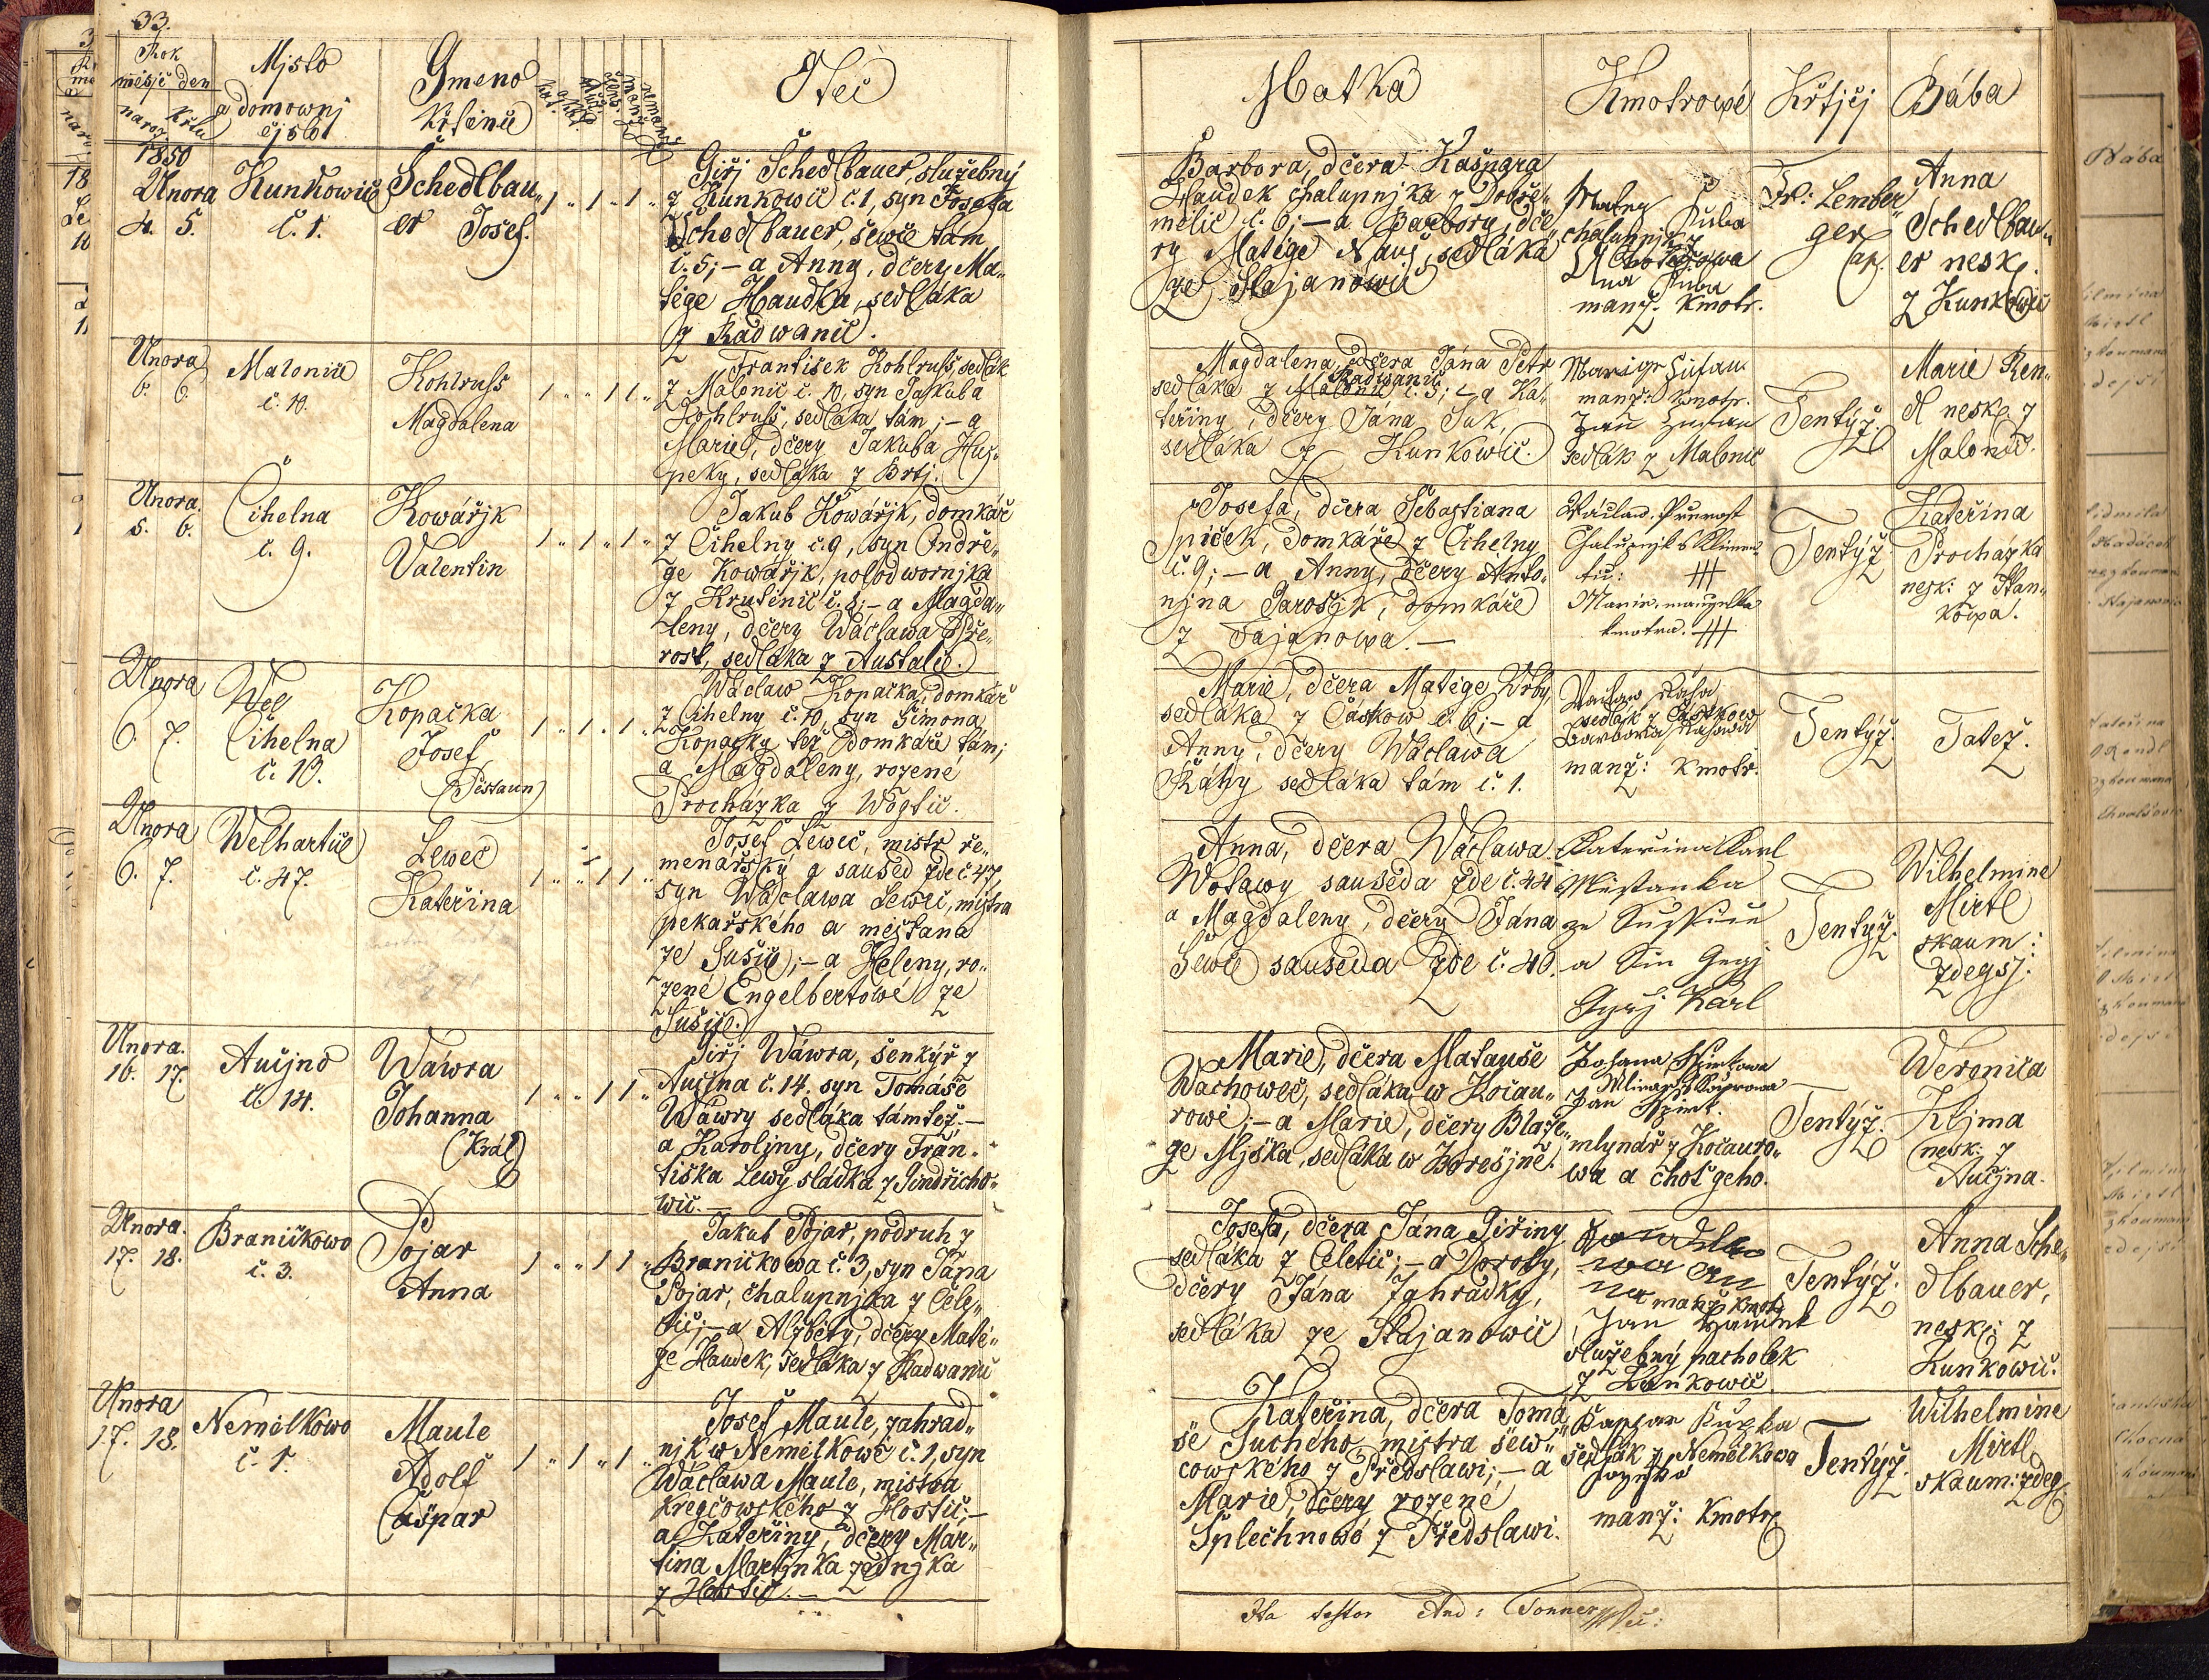 33.
Rok
měsíc den
naroz křtu
Mjsto
a domownj
čjslo
Gmeno
Křtěnců
Otec
1850
Unora
4. 5.
Kunkowic
č. 1.
Schedlbau„
er Josef.
1 „ 1 „ 1 „
Giřj Schedlbauer, služebný
z Kunkowic č. 1, syn Josefa
Schedlbauer, šewce tám
č. 5; – a Anny, dčery Ma„
těge Haudka, sedláka
z Radwanic.
Unora
6. 6.
Malonice
č. 10.
Kohlruss
Magdalena
1 „ „ 1 1 „
František Kohlruss, sedlák
z Malonic č. 10, syn Jakuba
Kohlruss, sedláka tám; – a
Marie, dčery Jakuba Huž„
peky, sedláka z Brtj.
Unora.
5. 6.
Cihelna
č. 9.
Kowářjk
Valentin
1 „ 1 „ 1 „
Jakub Kowářjk, domkář
z Cihelny č. 9, syn Ondře„
ge Kowářjk, polodwornjka
z Krutěnic č. 1; – a Magda„
leny, dčery Wáclawa Pře„
rost, sedláka z Austalic.
Unora
6. 7.
Wel
Cihelna
č. 10.
Kopačka
Josef
(Pištaun)
1 „ 1 „ 1 „
Wáclaw Kopačka, domkář
z Cihelny č. 10, syn Šimona
Kopačky též domkáře tám;
a Magdaleny, rozené
Procházka z Wogtic.
Unora
6. 7.
Welhartice
č. 47.
Lewec
Kateřina
1 „ „ 1 1 „
Josef Lewec, mistr ře„
menářský a saused zde č. 47
syn Wáclawa Lewec, mistra
pekařského a měšťana
ze Sušice; – a Heleny, ro„
zené Engelbertowé ze
Sušice.
Unora.
16. 17.
Aučjno
č. 14.
Wáwra
Johanna
(Král)
1 „ „ 1 1 „
Giřj Wáwra, šenkýř z
Aučjna č. 14, syn Tomáše
Wáwry sedláka támtéž; –
a Karoljny, dčery Fran„
tiška Lewý sládka z Gindřicho„
wic.
Unora.
17. 18.
Braničkowo
č. 3.
Pojar
Anna
1 „ „ 1 1 „
Jakub Pojar, podruh z
Braničkowa č. 3, syn Jána
Pojar, chalupnjka z Čele„
tic; – a Alžběty, dčery Matě„
ge Haudek, sedláka z Radwanic
Unora
17. 18.
Nemělkowo
č. 1.
Maule
Adolf
Cašpar
1 „ 1 „ 1 „
Josef Maule, zahrad„
njk w Nemělkowě č. 1, syn
Wáclawa Maule, mistra
kregčowského z Hostic; –
a Kateřiny, dčery Mar„
tina Martjnka zednjka
z Hostic. –
Matka
Kmotrowé
Křtjcj
Bába
Barbora, dčera Kašpara
Haudek chalupnjka z Dobře„
mělic č. 6; – a Barbory, dče„
ry Matěge Nauš, sedláka
ze Stajanowic
Matěg Kuba
chalupnjk z
Chotěšowa
Anna Kuba
manž. Kmotr.
Fr: Lember„
ger
Cap.
Anna
Schedlbau„
er nesk.
z Kunkowic
Magdalena, dčera Jána Petr
sedláka z Radwanic č. 5; – a Ka„
teřiny, dčery Jána Suk,
sedláka z Kunkowic.
Marige
manž: Kmotr.
Jan
sedlák z Malonic
Tentýž.
Marie Ren„
dl nesk. z
Malonic.
Josefa, dčera Šebastiana
Špiček, domkáře z Cihelny
č. 9; – a Anny, dčery Anto„
njna Jarošjk, domkáře
z Tajanowa. –
Wáclaw Prerost
Chalupnjk z
tic: +++
Marie, manzelka
kmotra. +++
Tentýž
Kateřina
Procházka
nesk: z Stan„
kowa.
Marie, dčera Matěge Wrby,
sedláka z Částkow č. 6; – a
Anny, dčery Wáclawa
Ráhy sedláka tám č. 1.
Waclaw Ráha
sedlák z Částkow
Barbora Rahowa
manž: Kmotr.
Tentýž.
Tatéž.
Anna, dčera Wáclawa
Wotawy sauseda zde č. 44
a Magdaleny, dčery Jána
Šewce sauseda zde č. 40.
Katerina Karl
Městanka
ze Sussice
a Sin Gegj
Gyrj Karl
Tentýž.
Wilhelmine
Mirtl
skaum:
zdegsj.
Marie, dčera Matauše
Wachowec, sedláka w Kočau„
rowě; – a Marie, dčery Blaže„
ge Mjška, sedláka w Borešjně.
Johana
Jan
mlynář z Kočauro„
wa a choť geho.
Tentýž.
Weronica
Kljma
nesk: z
Aučjna.
Josefa, dčera Jána Giřiny
sedláka z Čeletic; – a Doroty,
dčery Jána Zahrádky,
sedláka ze Stajanowic
manž. Kmotr.
Jan
služebný pacholek
z Kunkowic.
Tentýž.
Anna Sche„
dlbauer,
nesk: z
Kunkowic.
Kateřina, dčera Tomá„
še Suchého mistra šew„
cowského z Předslawi; – a
Marie, dčery rozené
Šplechnowé z Předslawi.
Kaspar
sedlák z Nemělkowa
manž: Kmotr
Tentýž.
Wilhelmine
Mirtl
skaum: zdeg.
Ita testor And: Tonner